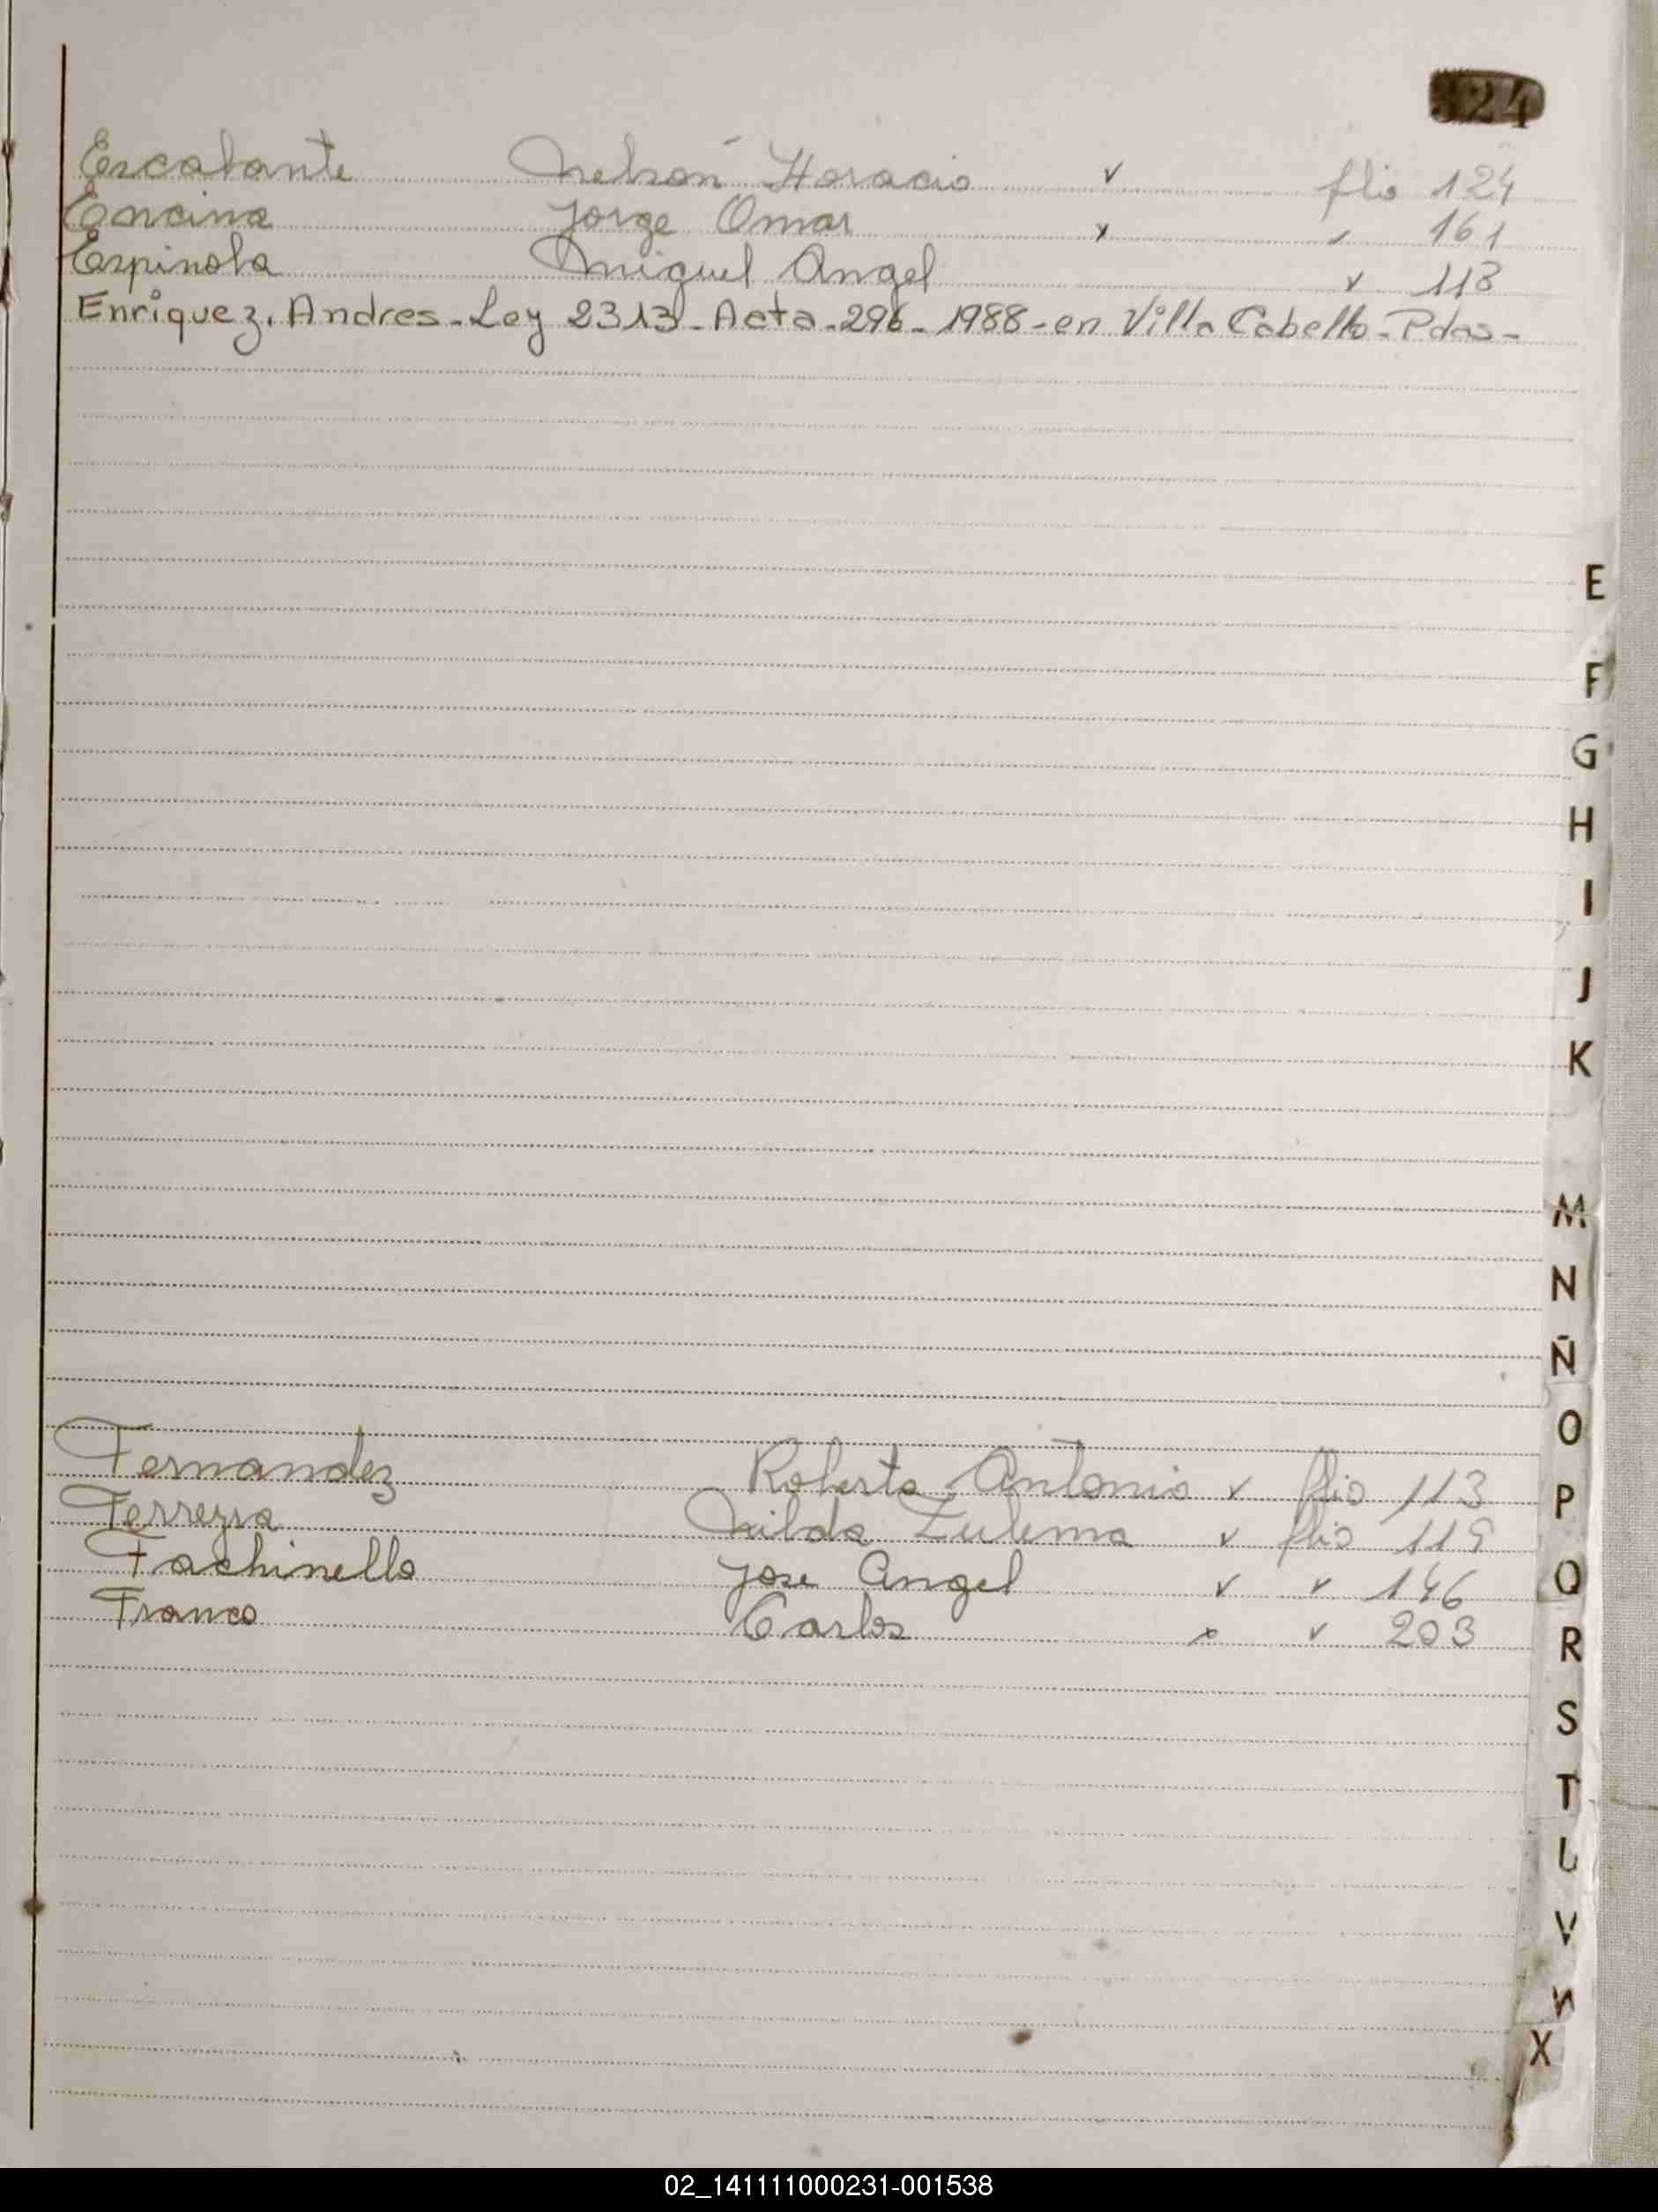 324
Escalante Nelson Horacio v flio 124
Encina Jorge Omar v " 161
Espinola Miguel Angel v 118
Enriquez. Andres - Ley 2313 - Acta - 296 - 1988 - en Villa Cabello - Pdas -
E
F
G
H
I
J
K
M
N
Ñ
Fernandez Roberto Antonio v flio 113
O
Ferreyra Nilda Zulema v flio 119
P
Fachinello Jose Angel v v 146
Q
Franco Carlos v v 203
R
S
T
U
V
W
X
02_141111000231-001538